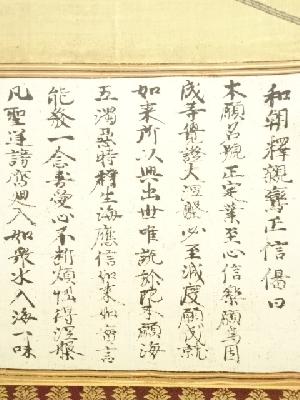 和朝釋親鸞正信偈曰
本願名號正定業至心信樂願為因
成等覺證大涅槃必至滅度願成就
如来所以興出世唯説弥陀本願海
五濁惡時群生海應信如来如實言
能發一念喜愛心不断煩悩得涅槃
凡聖逆謗齊廻入如衆水入海一味